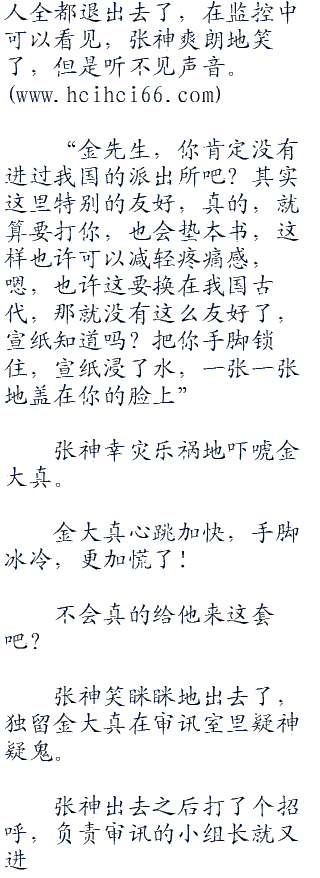 人全都退出去了，在监控中
可以看见，张神爽朗地笑
了，但是听不见声音。
(www.hcihci66.com)
“金先生，你肯定没有
进过我国的派出所吧？其实
这里特别的友好，真的，就
算要打你，也会垫本书，这
样也许可以减轻疼痛感，
嗯，也许这要换在我国古
代，那就没有这么友好了，
宣纸知道吗？把你手脚锁
住，宣纸浸了水，一张一张
地盖在你的脸上”
张神幸灾乐祸地吓唬金
大真。
金大真心跳加快，手脚
冰冷，更加慌了！
不会真的给他来这套
吧？
张神笑眯眯地出去了，
独留金大真在审讯室里疑神
疑鬼。
张神出去之后打了个招
呼，负责审讯的小组长就又
进